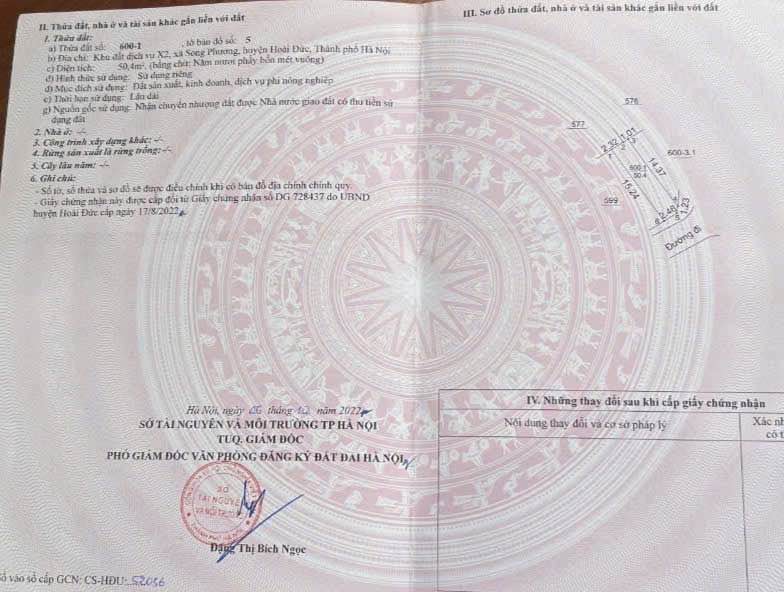 II. Thửa đất, nhà ở và tài sản khác gắn liền với đất
1. Thửa đất:
a) Thửa đất số: 600-1 , tờ bản đồ số: 5
b) Địa chỉ: Khu đất dịch vụ X2, xã Song Phương, huyện Hoài Đức, Thành phố Hà Nội
c) Diện tích: 50,4m², (bằng chữ: Năm mươi phẩy bốn mét vuông)
d) Hình thức sử dụng: Sử dụng riêng
đ) Mục đích sử dụng: Đất sản xuất, kinh doanh, dịch vụ phi nông nghiệp
e) Thời hạn sử dụng: Lâu dài
g) Nguồn gốc sử dụng: Nhận chuyển nhượng đất được Nhà nước giao đất có thu tiền sử
dụng đất
2. Nhà ở: -/-
3. Công trình xây dựng khác: -/-
4. Rừng sản xuất là rừng trồng: -/-
5. Cây lâu năm: -/-
6. Ghi chú:
- Số tờ, số thửa và sơ đồ sẽ được điều chỉnh khi có bản đồ địa chính chính quy.
- Giấy chứng nhận này được cấp đổi từ Giấy chứng nhận số DG 728437 do UBND
huyện Hoài Đức cấp ngày 17/8/2022
Hà Nội, ngày 06 tháng 10 năm 2022
SỞ TÀI NGUYÊN VÀ MÔI TRƯỜNG TP HÀ NỘI
TUQ. GIÁM ĐỐC
PHÓ GIÁM ĐỐC VĂN PHÒNG ĐĂNG KÝ ĐẤT ĐAI HÀ NỘI
SỞ
TÀI NGUYÊN
VÀ MÔI TRƯỜNG
Đặng Thị Bích Ngọc
Số vào sổ cấp GCN: CS-HĐU: 52036
III. Sơ đồ thửa đất, nhà ở và tài sản khác gắn liền với đất
576
577
2.32
1.01
600-3.1
14.37
600-1
50.4
15.24
599
2.48
1.23
Đường đi
IV. Những thay đổi sau khi cấp giấy chứng nhận
Nội dung thay đổi và cơ sở pháp lý
Xác nh
có t